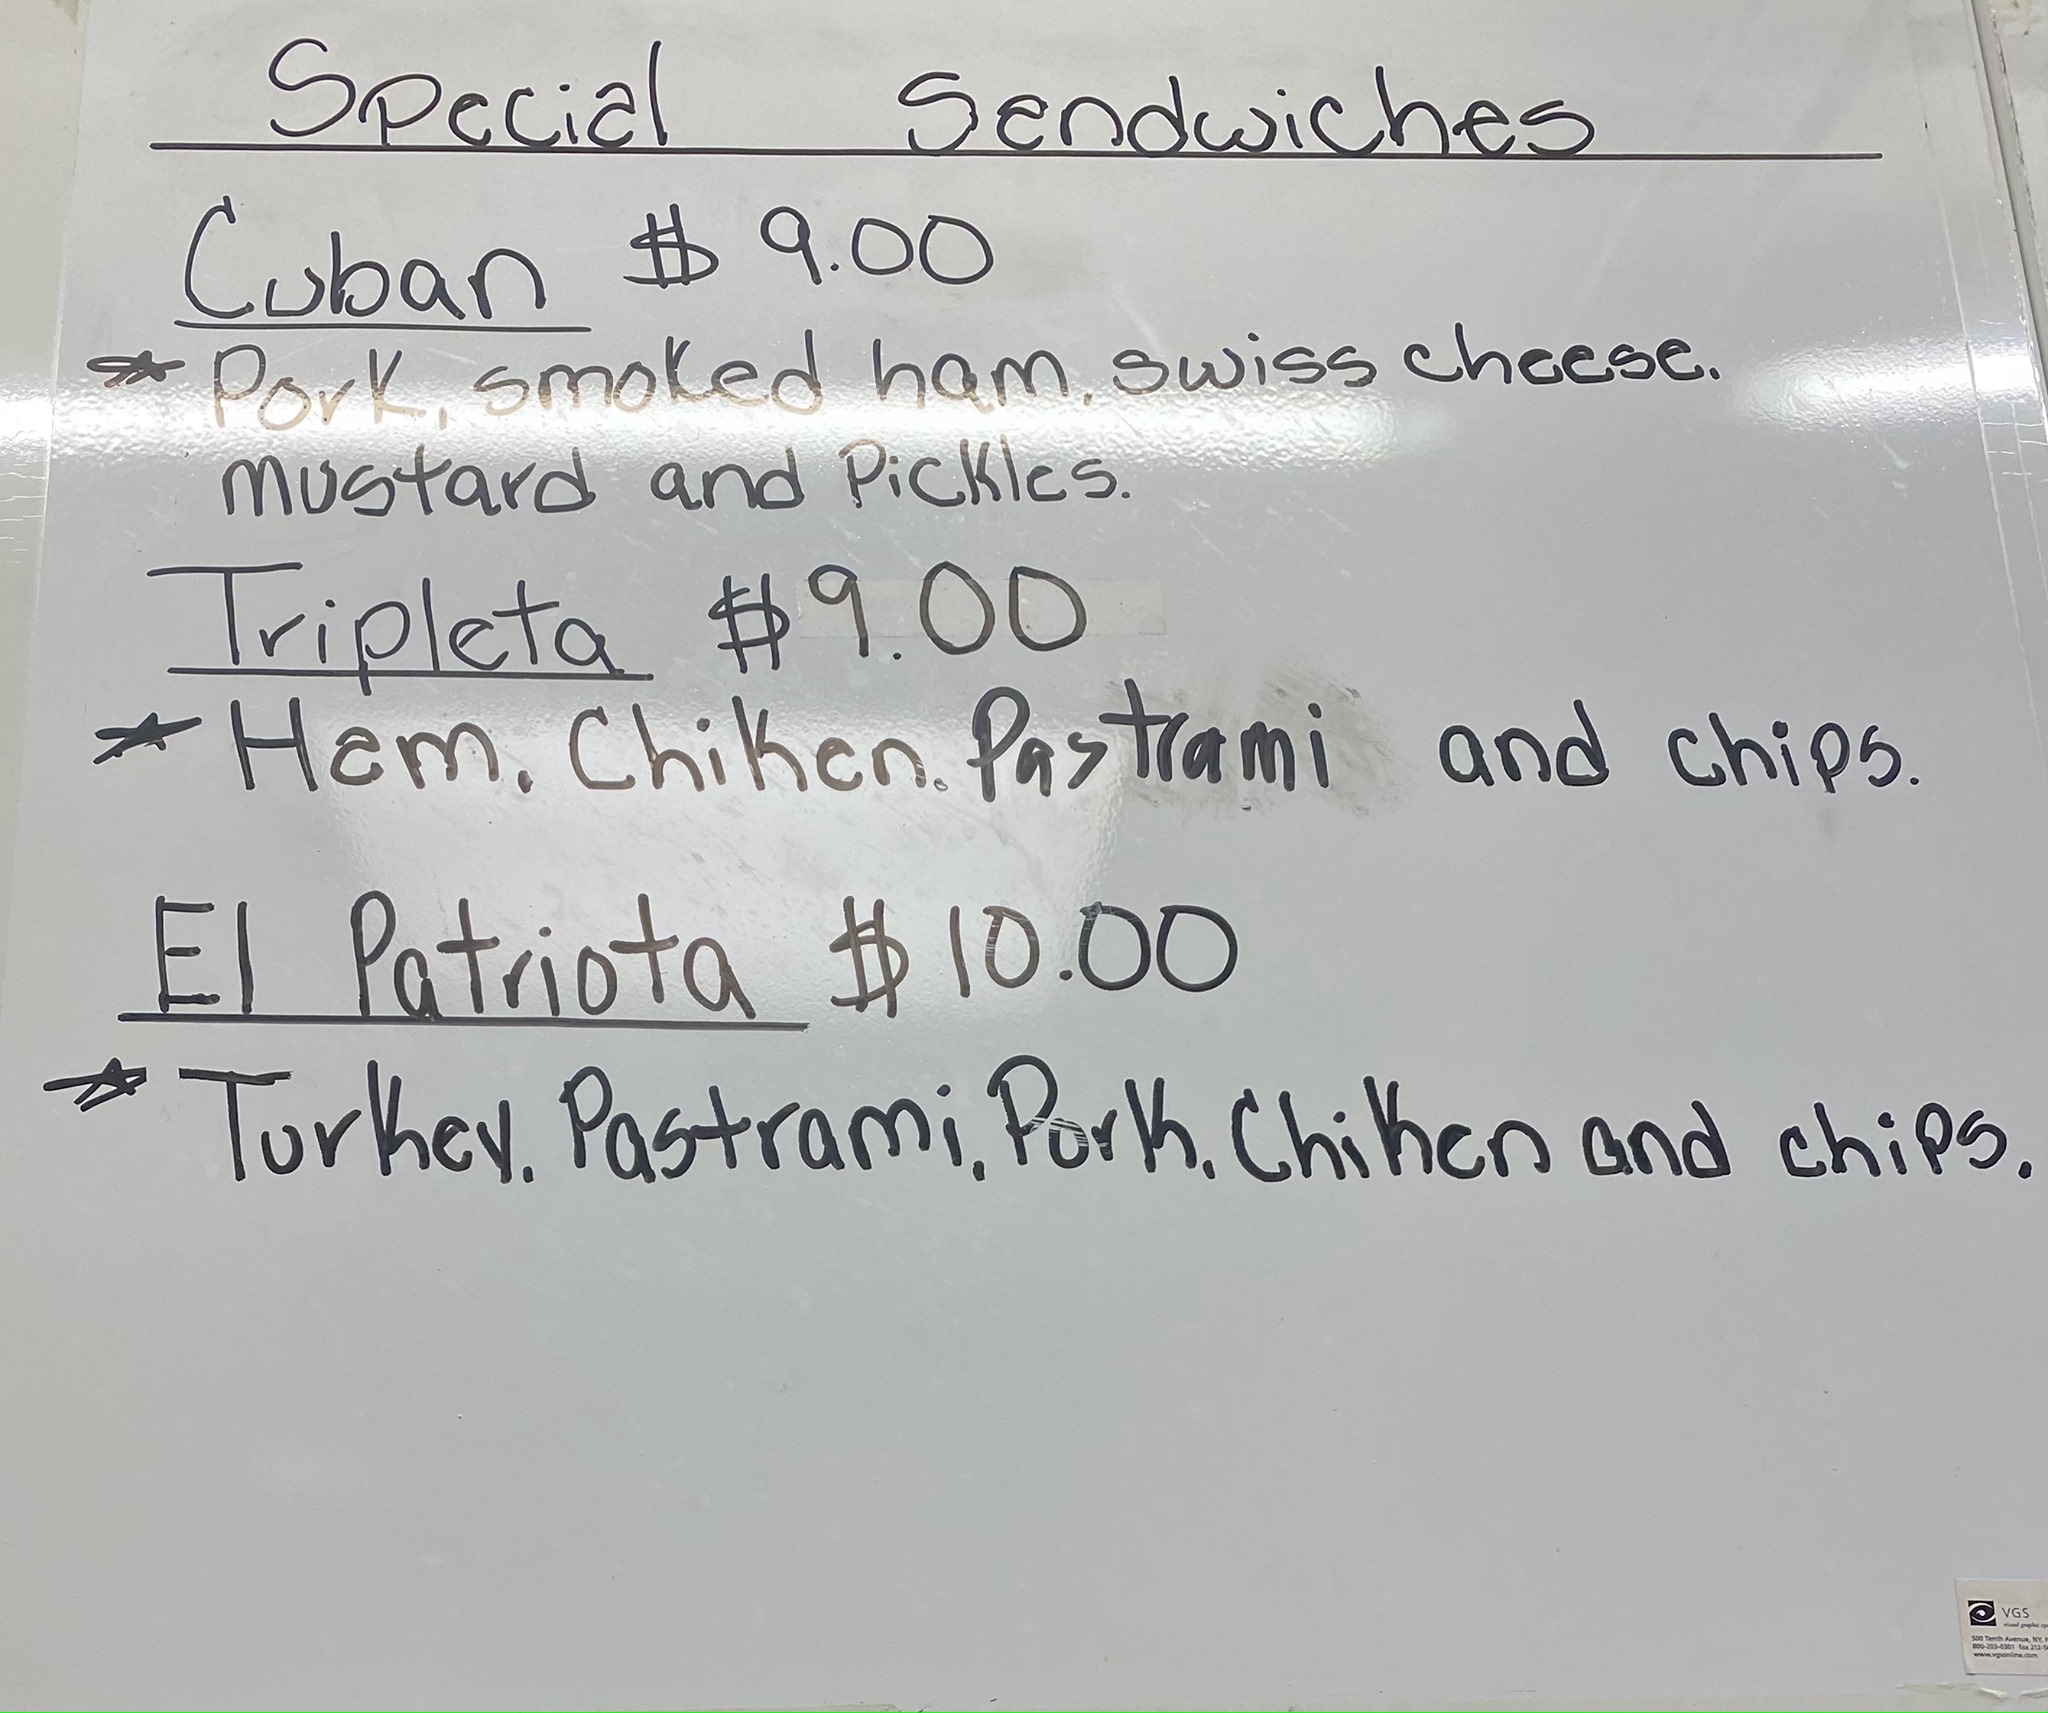 Special Sendwiches
Cuban $ 9.00
* Pork, smoked ham, swiss cheese.
mustard and Pickles.
Tripleta $9.00
* Ham. Chiken. Pastrami and chips.
El Patriota $10.00
* Turkey. Pastrami. Pork. Chiken and chips.
VGS
500 Tenth Avenue, NY,
800-203-0301 fax 212-
www.vgsonline.com